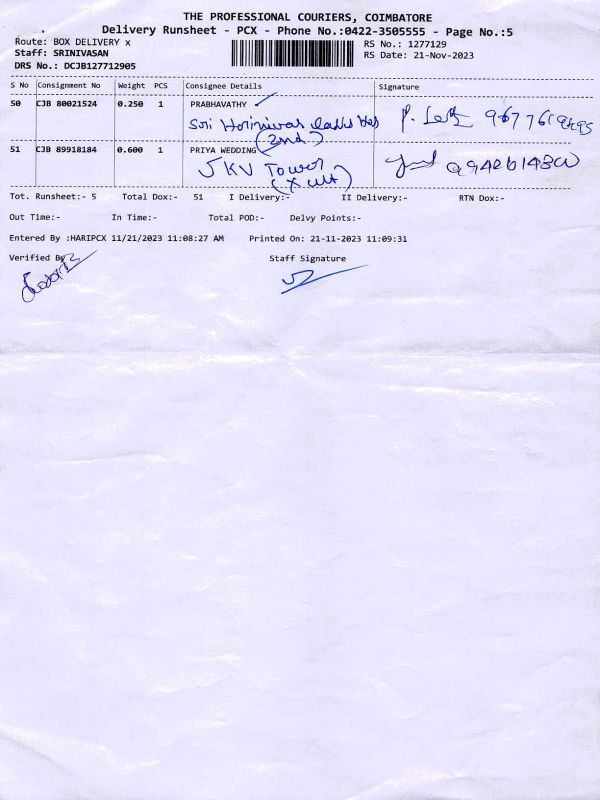 THE PROFESSIONAL COURIERS, COIMBATORE
Delivery Runsheet - PCX - Phone No.:0422-3505555 - Page No.:5
Route: BOX DELIVERY x
RS No.: 1277129
Staff: SRINIVASAN
RS Date: 21-Nov-2023
DRS No.: DCJB127712905
S No Consignment No Weight PCS Consignee Details Signature
50 CJB 80021524 0.250 1 PRABHAVATHY
Sri
(2nd)
51 CJB 89918184 0.600 1 PRIYA WEDDING
Tower
Tot. Runsheet:- 5 Total Dox:- 51 I Delivery:- II Delivery:- RTN Dox:-
Out Time:- In Time:- Total POD:- Delvy Points:-
Entered By :HARIPCX 11/21/2023 11:08:27 AM Printed On: 21-11-2023 11:09:31
Verified By Staff Signature